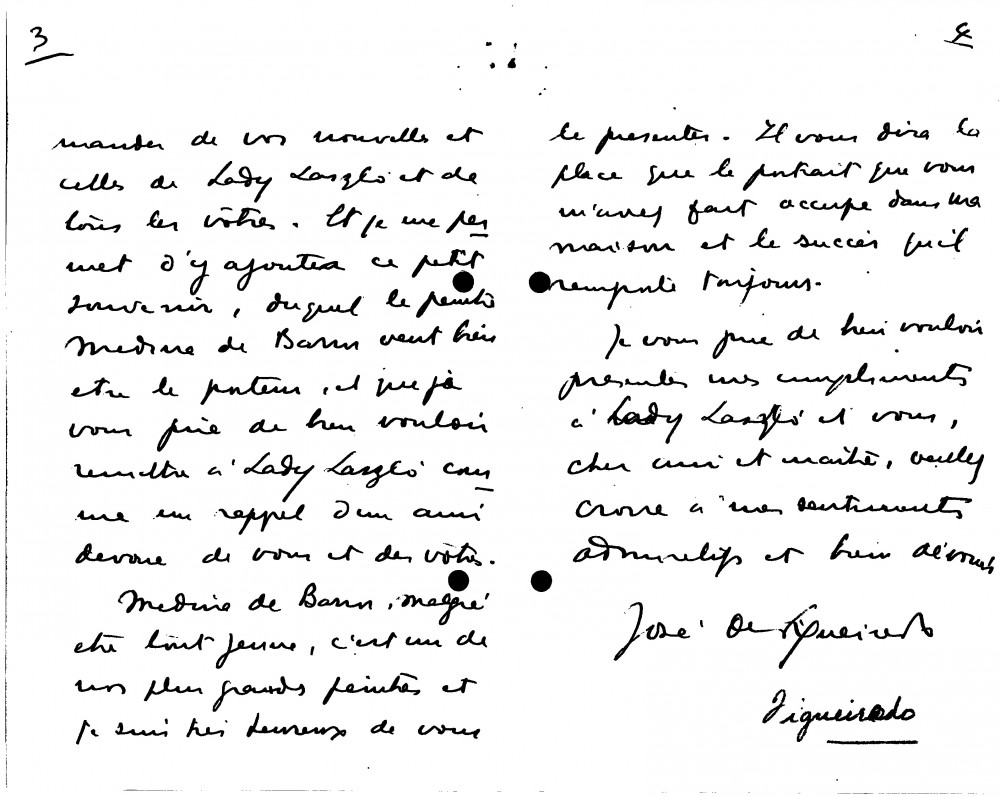 3
mander de vos nouvelles et
celles de Lady Laszló et de
tous les vôtres. Et je me per
met d'y ajouter ce petit
souvenir, duquel le peintre
Medina de Barrn veut bien
etre le porteur, et que je
vous prie de bien vouloir
remettre a' Lady Laszló com
me un rappel d'un ami
devoué de vous et des vôtres.
Medina de Barrn, malgré
etre tout jeune, c'est un de
nos plus grands peintres et
je suis très heureux de vous
4
le presenter. Il vous dira la
place que le portrait que vous
m'avez fait occupe dans ma
maison et le succès qu'il
remporte toujours.
Je vous prie de bien vouloir
presenter mes compliments
a' Lady Laszló et vous,
cher ami et maître, veuillez
croire a' mes sentiments
admiratifs et bien dévoués
José de Figueiredo
Figueiredo